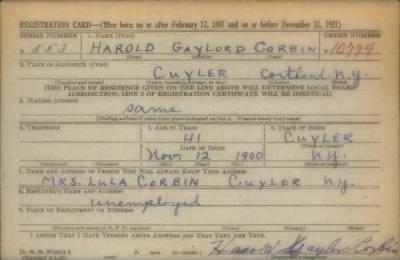 REGISTRATION CARD—(Men born on or after February 17, 1897 and on or before December 31, 1921)
SERIAL NUMBER 1. NAME (Print) ORDER NUMBER
T 553 HAROLD GAYLORD CORBIN 10794
(First) (Middle) (Last)
2. PLACE OF RESIDENCE (Print)
CUYLER Cortland N.Y.
(THE PLACE OF RESIDENCE GIVEN ON THE LINE ABOVE WILL DETERMINE LOCAL BOARD
JURISDICTION; LINE 2 OF REGISTRATION CERTIFICATE WILL BE IDENTICAL)
3. MAILING ADDRESS
same
[Mailing address if other than place indicated on line 2. If same insert word same]
4. TELEPHONE 5. AGE IN YEARS 6. PLACE OF BIRTH
41 CUYLER
DATE OF BIRTH
Nov. 12 1900 N.Y.
7. NAME AND ADDRESS OF PERSON WHO WILL ALWAYS KNOW YOUR ADDRESS
MRS. LULA CORBIN CUYLER N.Y.
8. EMPLOYER'S NAME AND ADDRESS
unemployed
9. PLACE OF EMPLOYMENT OR BUSINESS
I AFFIRM THAT I HAVE VERIFIED ABOVE ANSWERS AND THAT THEY ARE TRUE.
D. S. S. FORM 1 Harold Gaylord Corbin